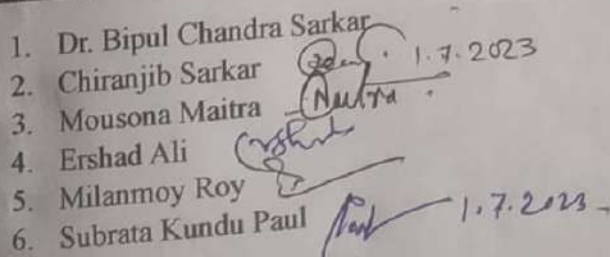 1. Dr. Bipul Chandra Sarkar
2. Chiranjib Sarkar 1.7.2023
3. Mousona Maitra Maitra
4. Ershad Ali
5. Milanmoy Roy
6. Subrata Kundu Paul 1.7.2023